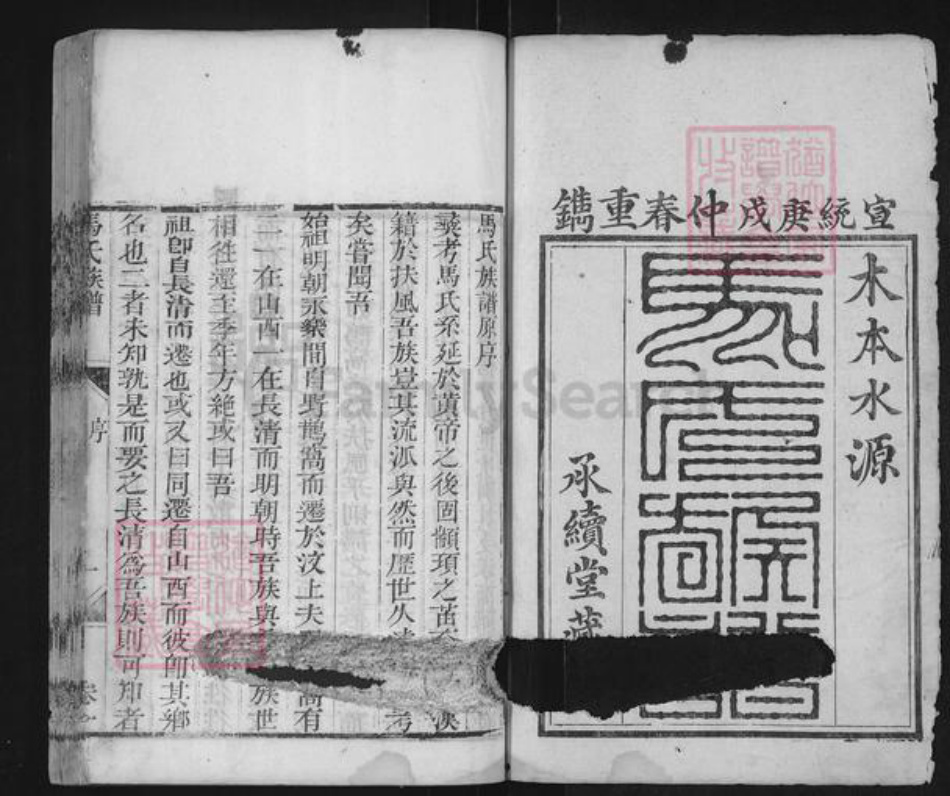 宣統庚戌仲春重鐫
木本水源
馬氏族譜
承續堂藏
馬氏族譜原序
考馬氏系延於黃帝之後固顓頊之苗
籍於扶風吾族豈其流派與然而歷世久
考
矣嘗聞吾
始祖明朝永樂間自野鵲窩而遷於汶上夫
窩有
二一在山西一在長清而明朝時吾族與
族世
相徃還至季年方絶或曰吾
祖卽自長清而遷也或又曰同遷自山西而彼卽其鄉
名也二者未知孰是而要之長清爲吾族則可知者
馬氏族譜
序
卷一
FamilySearch